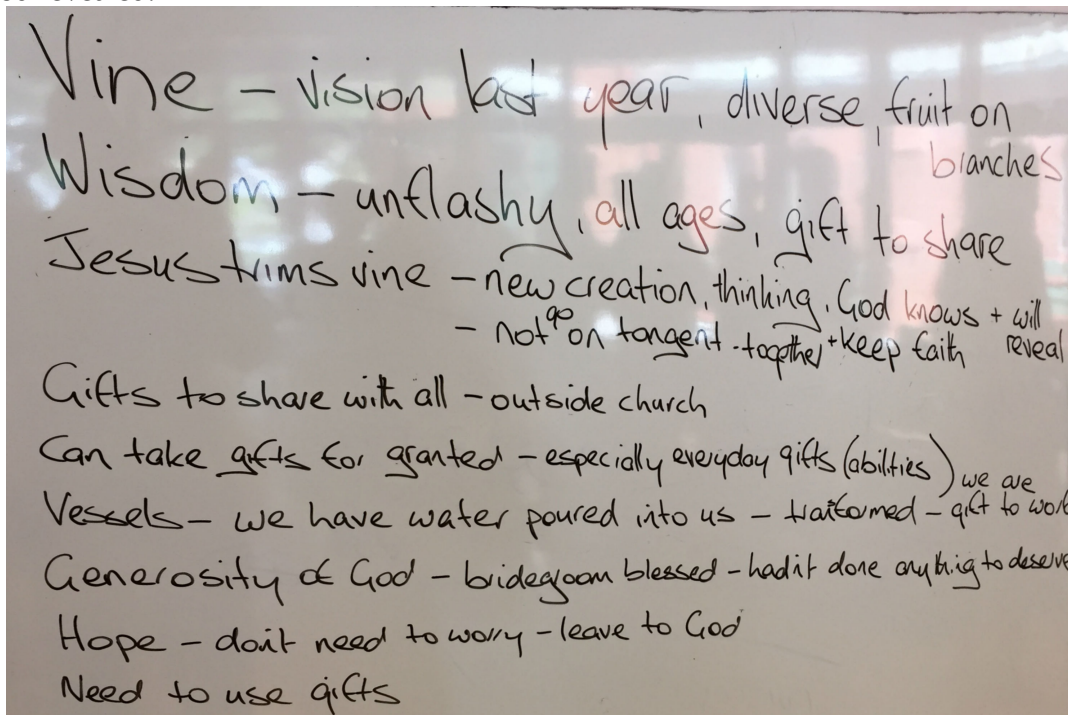 Vine – vision last year, diverse, fruit on
branches
Wisdom – unflashy, all ages, gift to share
Jesus trims vine – new creation, thinking, God knows + will
reveal
– not go on tangent - together + keep faith
Gifts to share with all – outside church
Can take gifts for granted – especially everyday gifts (abilities)
we are
Vessels – we have water poured into us – – gift to
Generosity of God – blessed – hadn't done anything to deserve
Hope – don't need to worry – leave to God
Need to use gifts